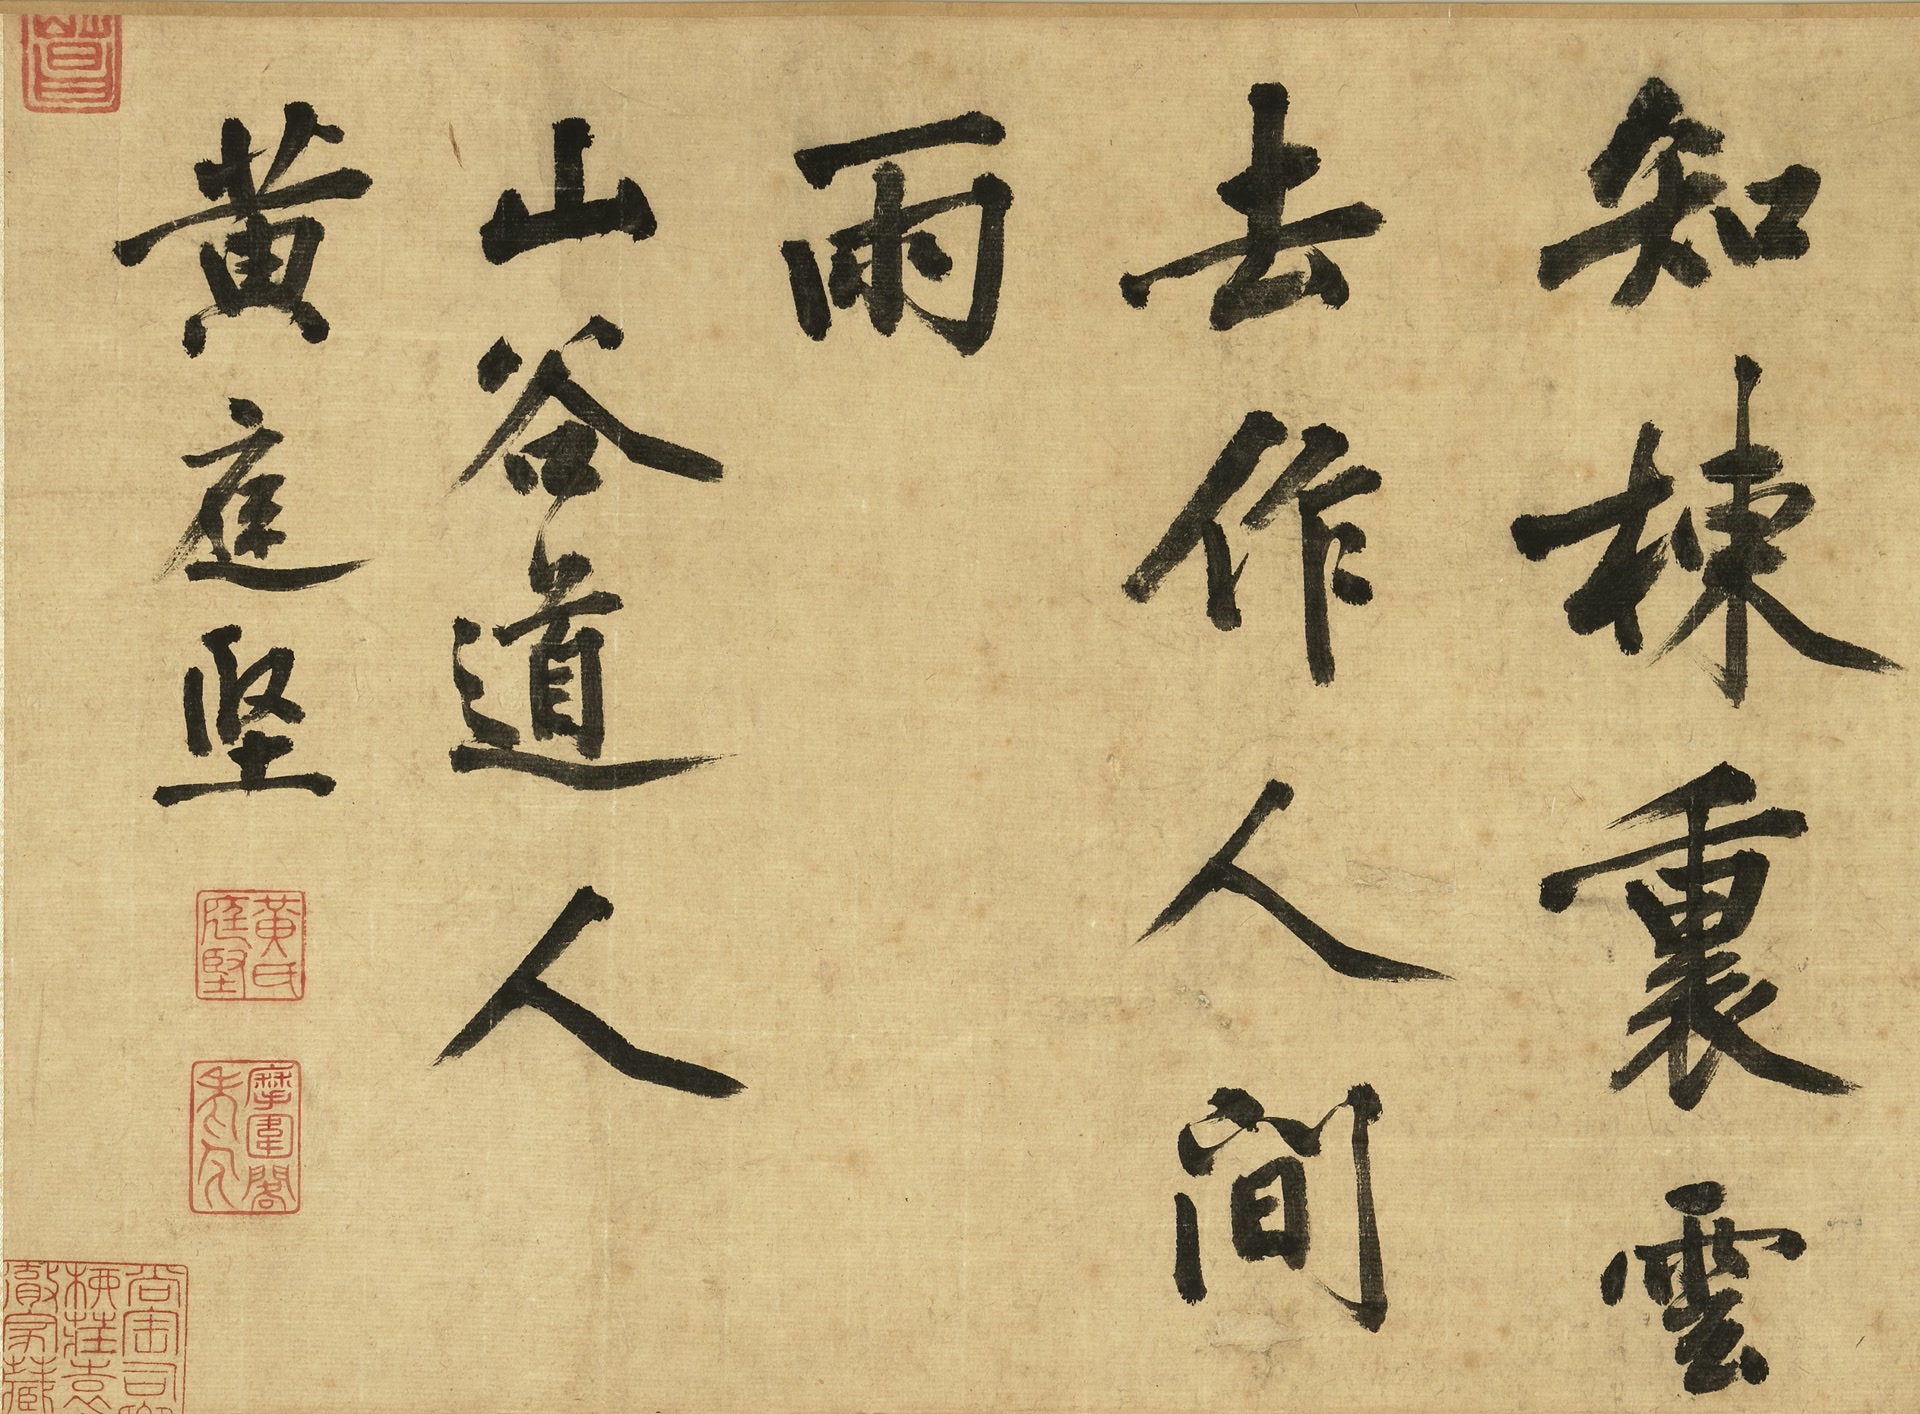 知棟裏雲
去作人間
雨
山谷道人
黃庭堅
黃氏
庭堅
摩圍閣
老人